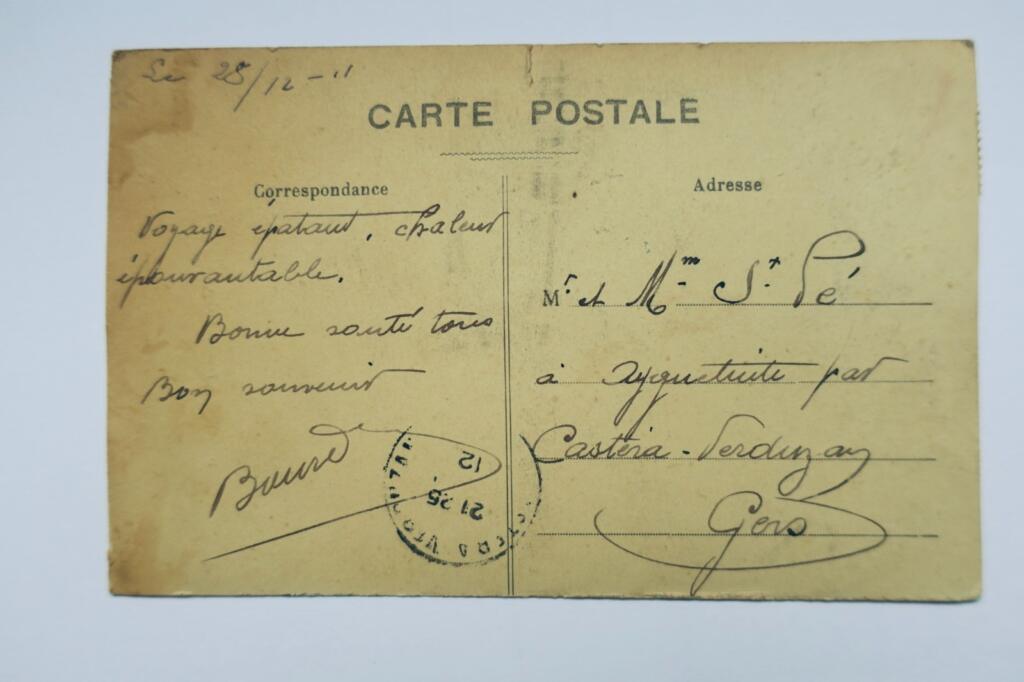 Le 28/12-11
CARTE POSTALE
Correspondance
Voyage épatant, chaleur
épouvantable.
Bonne santé tous
Bon souvenir
Adresse
Mr. et Mme St. Pé
à Ayguetinte par
Castéra-Verduzan
Gers
21 25
12